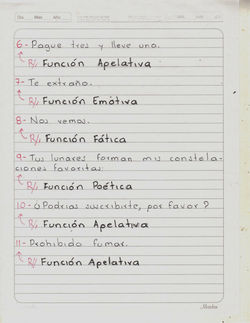 Día Mes Año
6- Pague tres y lleve uno.
R/ Función Apelativa
7- Te extraño.
R/ Función Emótiva
8- Nos vemos.
R/ Función Fática
9- Tus lunares forman mis constela-
ciones favoritas.
R/ Función Poética
10- ¿Podrías suscribirte, por favor?
R/ Función Apelativa
11- Prohibido fumar.
R/ Función Apelativa